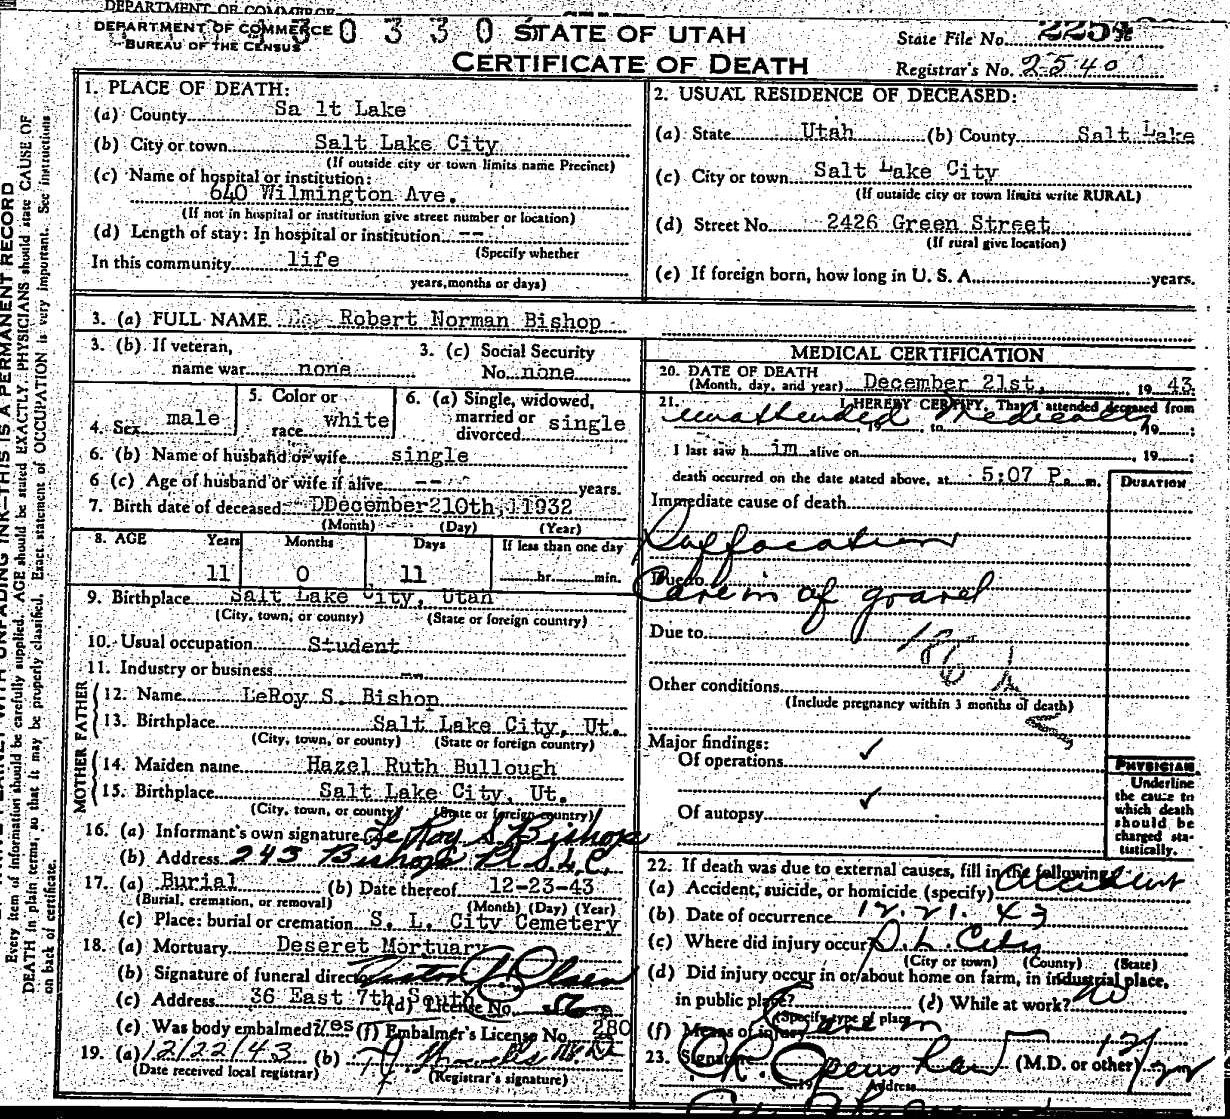 DEPARTMENT OF COMMERCE
DEPARTMENT OF COMMERCE
BUREAU OF THE CENSUS
3 0 3 3 0
STATE OF UTAH
CERTIFICATE OF DEATH
State File No. 225
Registrar's No. 2540
1. PLACE OF DEATH:
(a) County Sa lt Lake
(b) City or town Salt Lake City
(If outside city or town limits name Precinct)
(c) Name of hospital or institution:
640 Wilmington Ave.
(If not in hospital or institution give street number or location)
(d) Length of stay: In hospital or institution --
(Specify whether
In this community life
years, months or days)
2. USUAL RESIDENCE OF DECEASED:
(a) State Utah (b) County Salt Lake
(c) City or town Salt Lake City
(If outside city or town limits write RURAL)
(d) Street No. 2426 Green Street
(If rural give location)
(e) If foreign born, how long in U. S. A. years.
3. (a) FULL NAME Robert Norman Bishop
3. (b) If veteran,
name war none
3. (c) Social Security
No. none
4. Sex male
5. Color or
race white
6. (a) Single, widowed,
married or
divorced single
6. (b) Name of husband or wife single
6 (c) Age of husband or wife if alive -- years.
7. Birth date of deceased DDecember210th,11932
(Month) (Day) (Year)
8. AGE Years Months Days If less than one day
11 0 11 hr. min.
9. Birthplace Salt Lake City, Utah
(City, town, or county) (State or foreign country)
10. Usual occupation Student
11. Industry or business --
FATHER
12. Name LeRoy S. Bishop
13. Birthplace Salt Lake City, Ut.
(City, town, or county) (State or foreign country)
MOTHER
14. Maiden name Hazel Ruth Bullough
15. Birthplace Salt Lake City, Ut.
(City, town, or county) (State or foreign country)
16. (a) Informant's own signature LeRoy S. Bishop
(b) Address 243 Bishop Pl. S.L.C.
17. (a) Burial (b) Date thereof 12-23-43
(Burial, cremation, or removal) (Month) (Day) (Year)
(c) Place: burial or cremation S. L. City Cemetery
18. (a) Mortuary Deseret Mortuary
(b) Signature of funeral director Olsen
(c) Address 36 East 7th South (d) License No. 56
(e) Was body embalmed? Yes (f) Embalmer's License No. 280
19. (a) 12/22/43 (b)
(Date received local registrar) (Registrar's signature)
MEDICAL CERTIFICATION
20. DATE OF DEATH
(Month, day, and year) December 21st, 19 43
21. I HEREBY CERTIFY, That I attended deceased from
unattended Medically
, 19 to , 19 ;
I last saw h im alive on , 19 ;
death occurred on the date stated above, at 5:07 P. m.
DURATION
Immediate cause of death
Suffocation
Due to
Cave in of gravel
Due to
Other conditions
(Include pregnancy within 3 months of death)
Major findings:
Of operations ✓
Of autopsy ✓
PHYSICIAN
Underline
the cause to
which death
should be
charged sta-
tistically.
22. If death was due to external causes, fill in the following:
(a) Accident, suicide, or homicide (specify) accident
(b) Date of occurrence 12. 21. 43
(c) Where did injury occur? S. L. City
(City or town) (County) (State)
(d) Did injury occur in or about home on farm, in industrial place,
in public place? (e) While at work? no
(Specify type of place
(f) Means of injury Cave in
23. Signature (M.D. or other)
Address
WITH UNFADING INK—THIS IS A PERMANENT RECORD
Every item of information should be carefully supplied. AGE should be stated EXACTLY. PHYSICIANS should state CAUSE OF
DEATH in plain terms, so that it may be properly classified. Exact statement of OCCUPATION is very important. See instructions
on back of certificate.